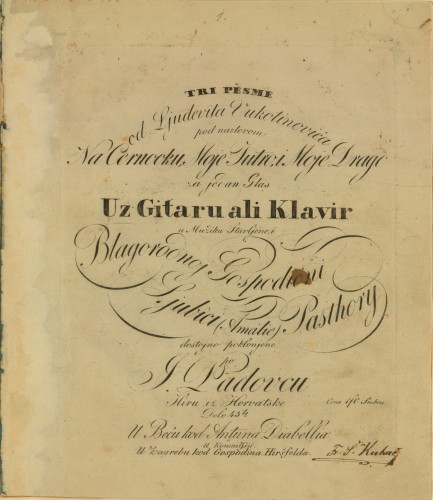 1.
TRI PĚSME
od Ljudevita Vukotinovića
pod naslovom
Na Cěrnooku, Moje Jutro, i Moje Drago
za jedan Glas
Uz Gitaru ali Klavir
u Mužiku Stavljene i
Blagorodnoj Gospodični
Ljubici (Amalie) Pasthory
dostojno poklonjene
po
I. Padovcu
Hiru iz Horvatske
Delo 43
U Beču kod Antuna Diabellia
U Zagrebu kod Gospodina Hiršfelda
Fr. Š. Kuhač